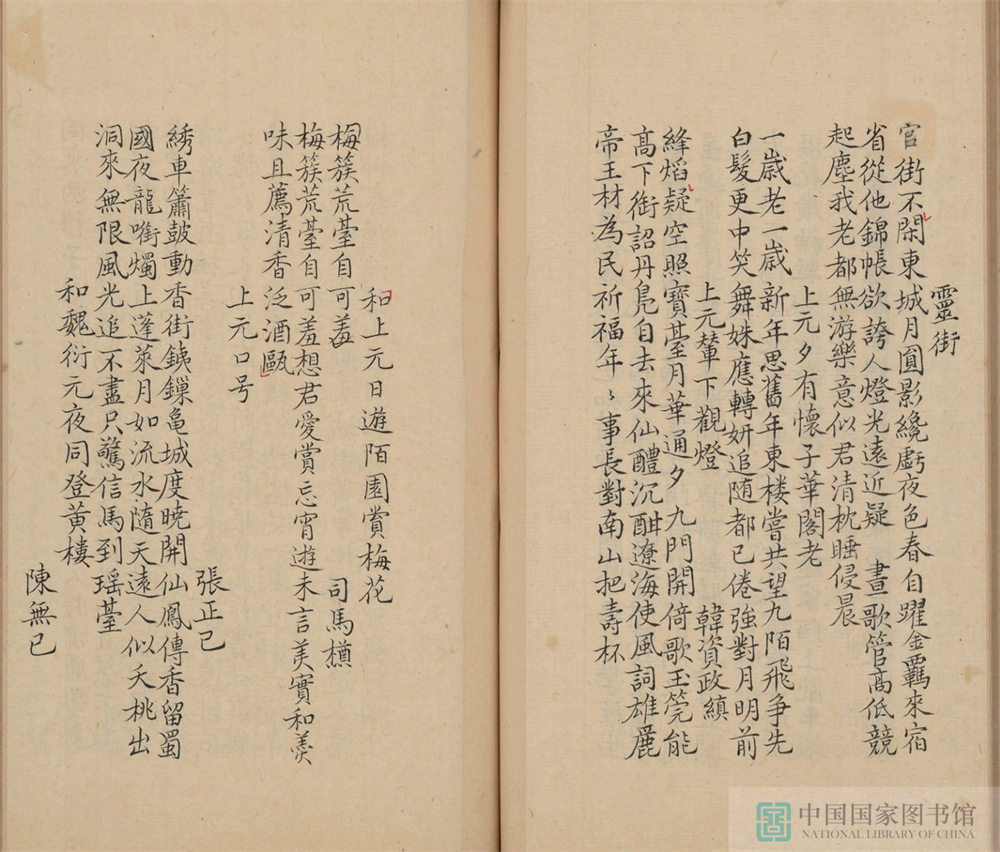 靈街
官街不閑東城月圓影纔虧夜色春自躍金覊來宿
省從他錦帳欲誇人燈光遠近疑　晝歌管高低競
起塵我老都無游樂意似君清枕睡侵晨
上元夕有懷子華閣老
一歲老一歲新年思舊年東樓嘗共望九陌飛爭先
白髮更中笑舞姝應轉妍追随都已倦強對月明前
上元輦下觀燈　韓資政縝
絳熖疑空照寶䑓月華通夕九門開倚歌玉筦能
高下銜詔丹鳬自去來仙醴沉酣遼海使風詞雄麗
帝王材為民祈福年〻事長對南山把壽杯
和上元日遊陌園賞梅花
梅簇荒䑓自可羞　司馬槱
梅簇荒䑓自可羞想君愛賞忘宵遊未言美實和羮
味且薦清香泛酒甌
上元口号
張正己
綉車簫鼓動香街銕鏁亀城度曉開仙鳳傳香留蜀
國夜龍銜燭上蓬萊月如流水隨天遠人似夭桃出
洞來無限風光追不盡只驚信馬到瑶䑓
和魏衍元夜同登黄樓
陳無已
中国国家图书馆
NATIONAL LIBRARY OF CHINA